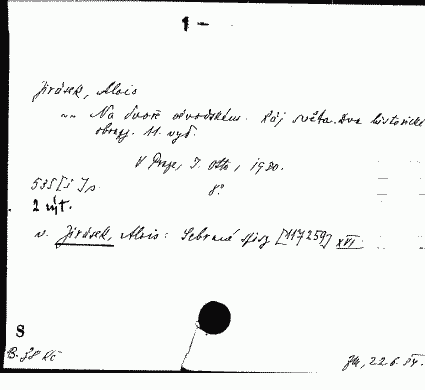 1 -
Jirásek, Alois
"" Na dvoře vévodském. Ráj světa. Dva historické
obrazy. 11. vyd.
V Praze, J. Otto, 1920.
8°
2 výt.
v. Jirásek, Alois: Sebrané spisy [117259] XVI.
S
B. 38 Kč